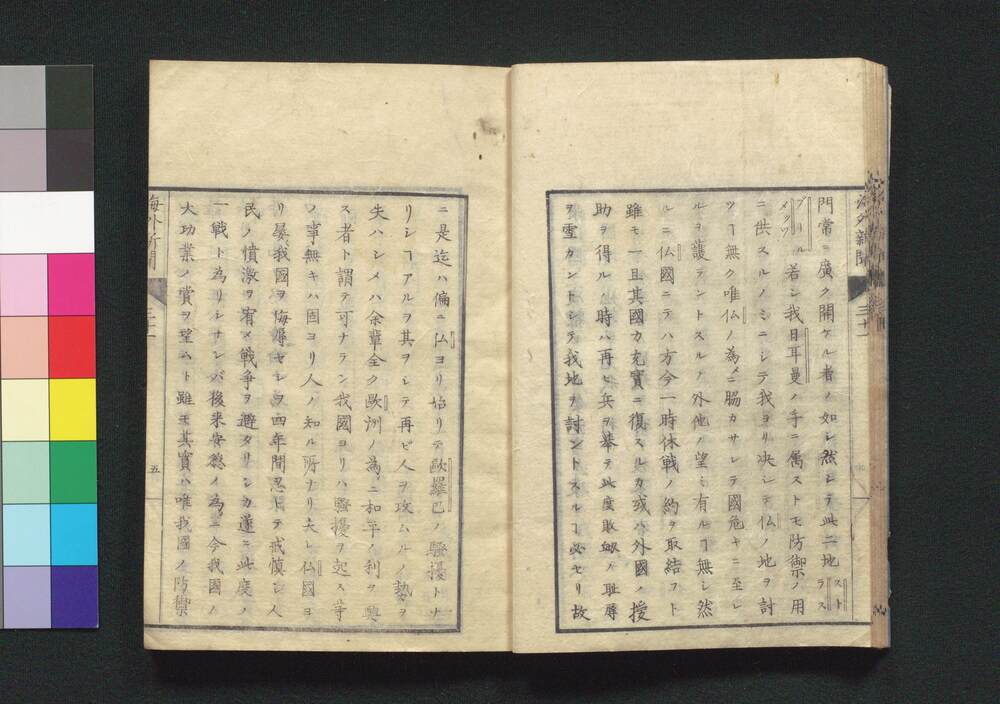 海外新聞
三十一
門常ニ廣ク開ケル者ノ如シ然シテ此二地スト
ラス
ブール
メッツ若シ我日耳曼ノ手ニ属ストモ防禦ノ用
ニ供スルノミニシテ我ヨリ决シテ仏ノ地ヲ討
ツヿ無ク唯仏ノ為メニ脇カサレテ國危キニ至レ
ルヲ護ラントスルノ外他ノ望ミ有ルヿ無シ然
ルニ仏國ニテハ方今一時休戦ノ約ヲ取結フト
雖モ一旦其國力充實ニ復スルカ或ハ外國ノ援
助ヲ得ルノ時ハ再ヒ兵ヲ挙テ此度敗衂ノ耻辱
ヲ雪カントシテ我地ヲ討ントスルヿ必セリ故
ニ是迄ハ偏ニ仏ヨリ始リテ歐羅巴ノ騒擾トナ
リシヿアルヲ其ヲシテ再ビ人ヲ攻ムルノ勢ヲ
失ハシメハ余輩全ク歐洲ノ為ニ和平ノ利ヲ興
ス者ト謂テ可ナラン我國ヨリハ騒擾ヲ起ス等
ノ事無キハ固ヨリ人ノ知ル所ナリ夫レ仏國ヨ
リ屡我國ヲ侮辱セシヲ四年間忍ヒテ戒慎シ人
民ノ憤激ヲ宥メ戦争ヲ避タリシカ遂ニ此度ノ
一戦ト為リシナレバ後来安穏ノ為ニ今我國ノ
大功業ノ賞ヲ望ムト雖モ其實ハ唯我國ノ防禦
海外新聞
三十一
五